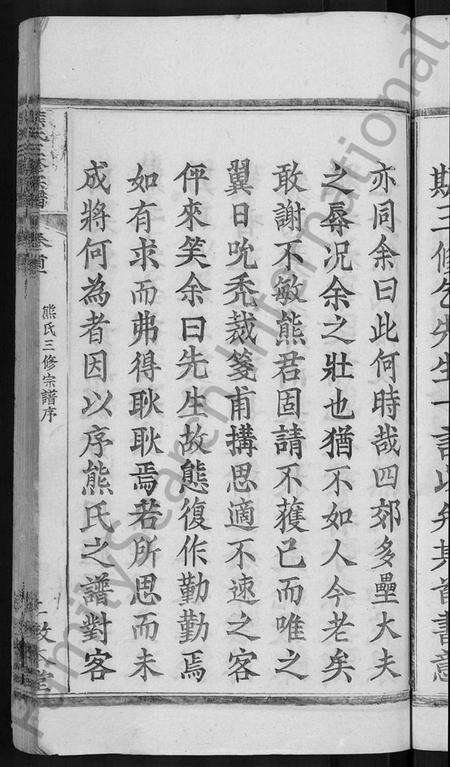 期三修乞先生一言以弁其首書意
亦同余曰此何時哉四郊多壘大夫
之辱况余之壯也猶不如人今老矣
敢謝不敏熊君固請不獲已而唯之
翼日吮禿裁箋甫搆思適不速之客
伻來笑余曰先生故態復作勤勤焉
如有求而弗得耿耿焉若所思而未
成將何為者因以序熊氏之譜對客
熊氏三修宗譜 卷首
熊氏三修宗譜序
FamilySearch International